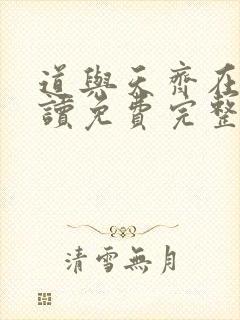 道與天齊在
讀免費完整
清雪無月